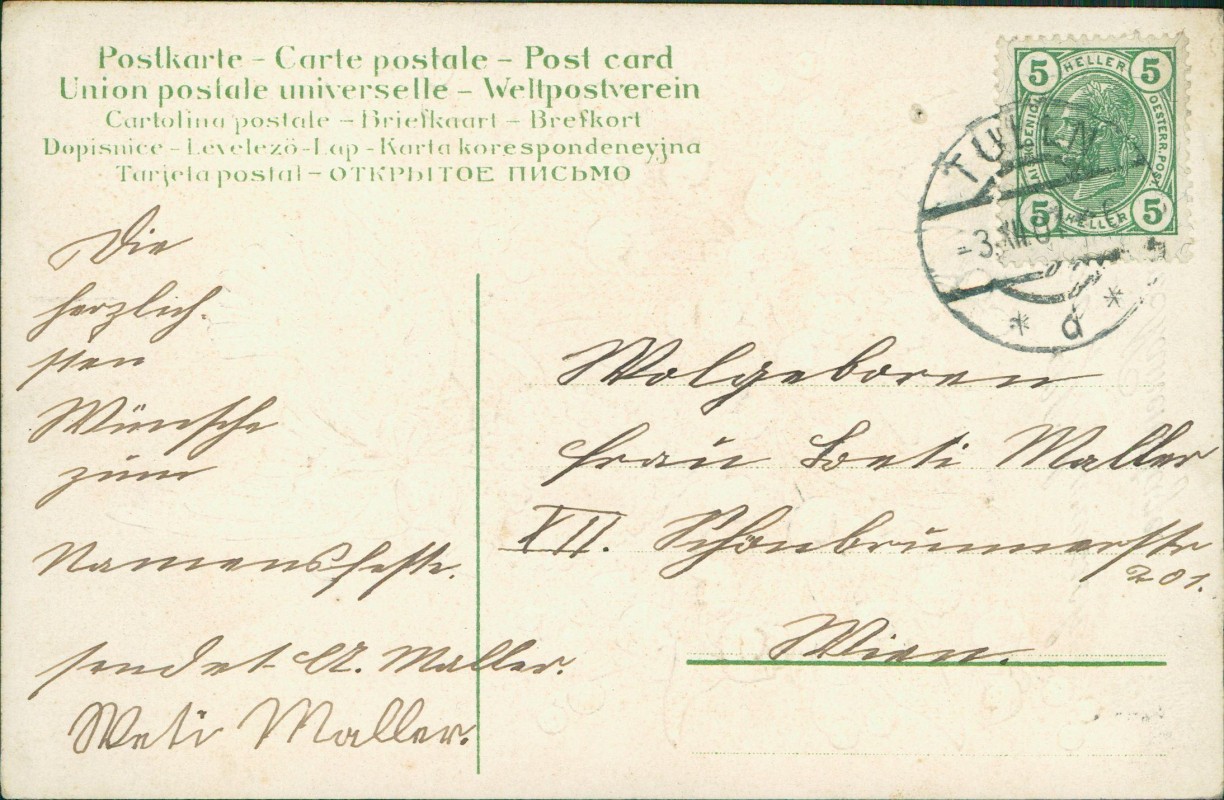 Postkarte – Carte postale – Post card
Union postale universelle – Weltpostverein
Cartolina postale – Briefkaart – Brefkort
Dopisnice – Levelezö-Lap – Karta korespondencyjna
Tarjeta postal – ОТКРЫТОЕ ПИСЬМО
5 HELLER 5
OESTERR. POST.
5 HELLER 5
TULLN
-3.XII.07
* d *
Die
herzlich-
sten
Wünsche
zum
Namensfeste.
sendet A. Maller.
Weti Maller.
Wolgeboren
Frau Maller
XII. Schönbrunnerstr
201.
Wien.